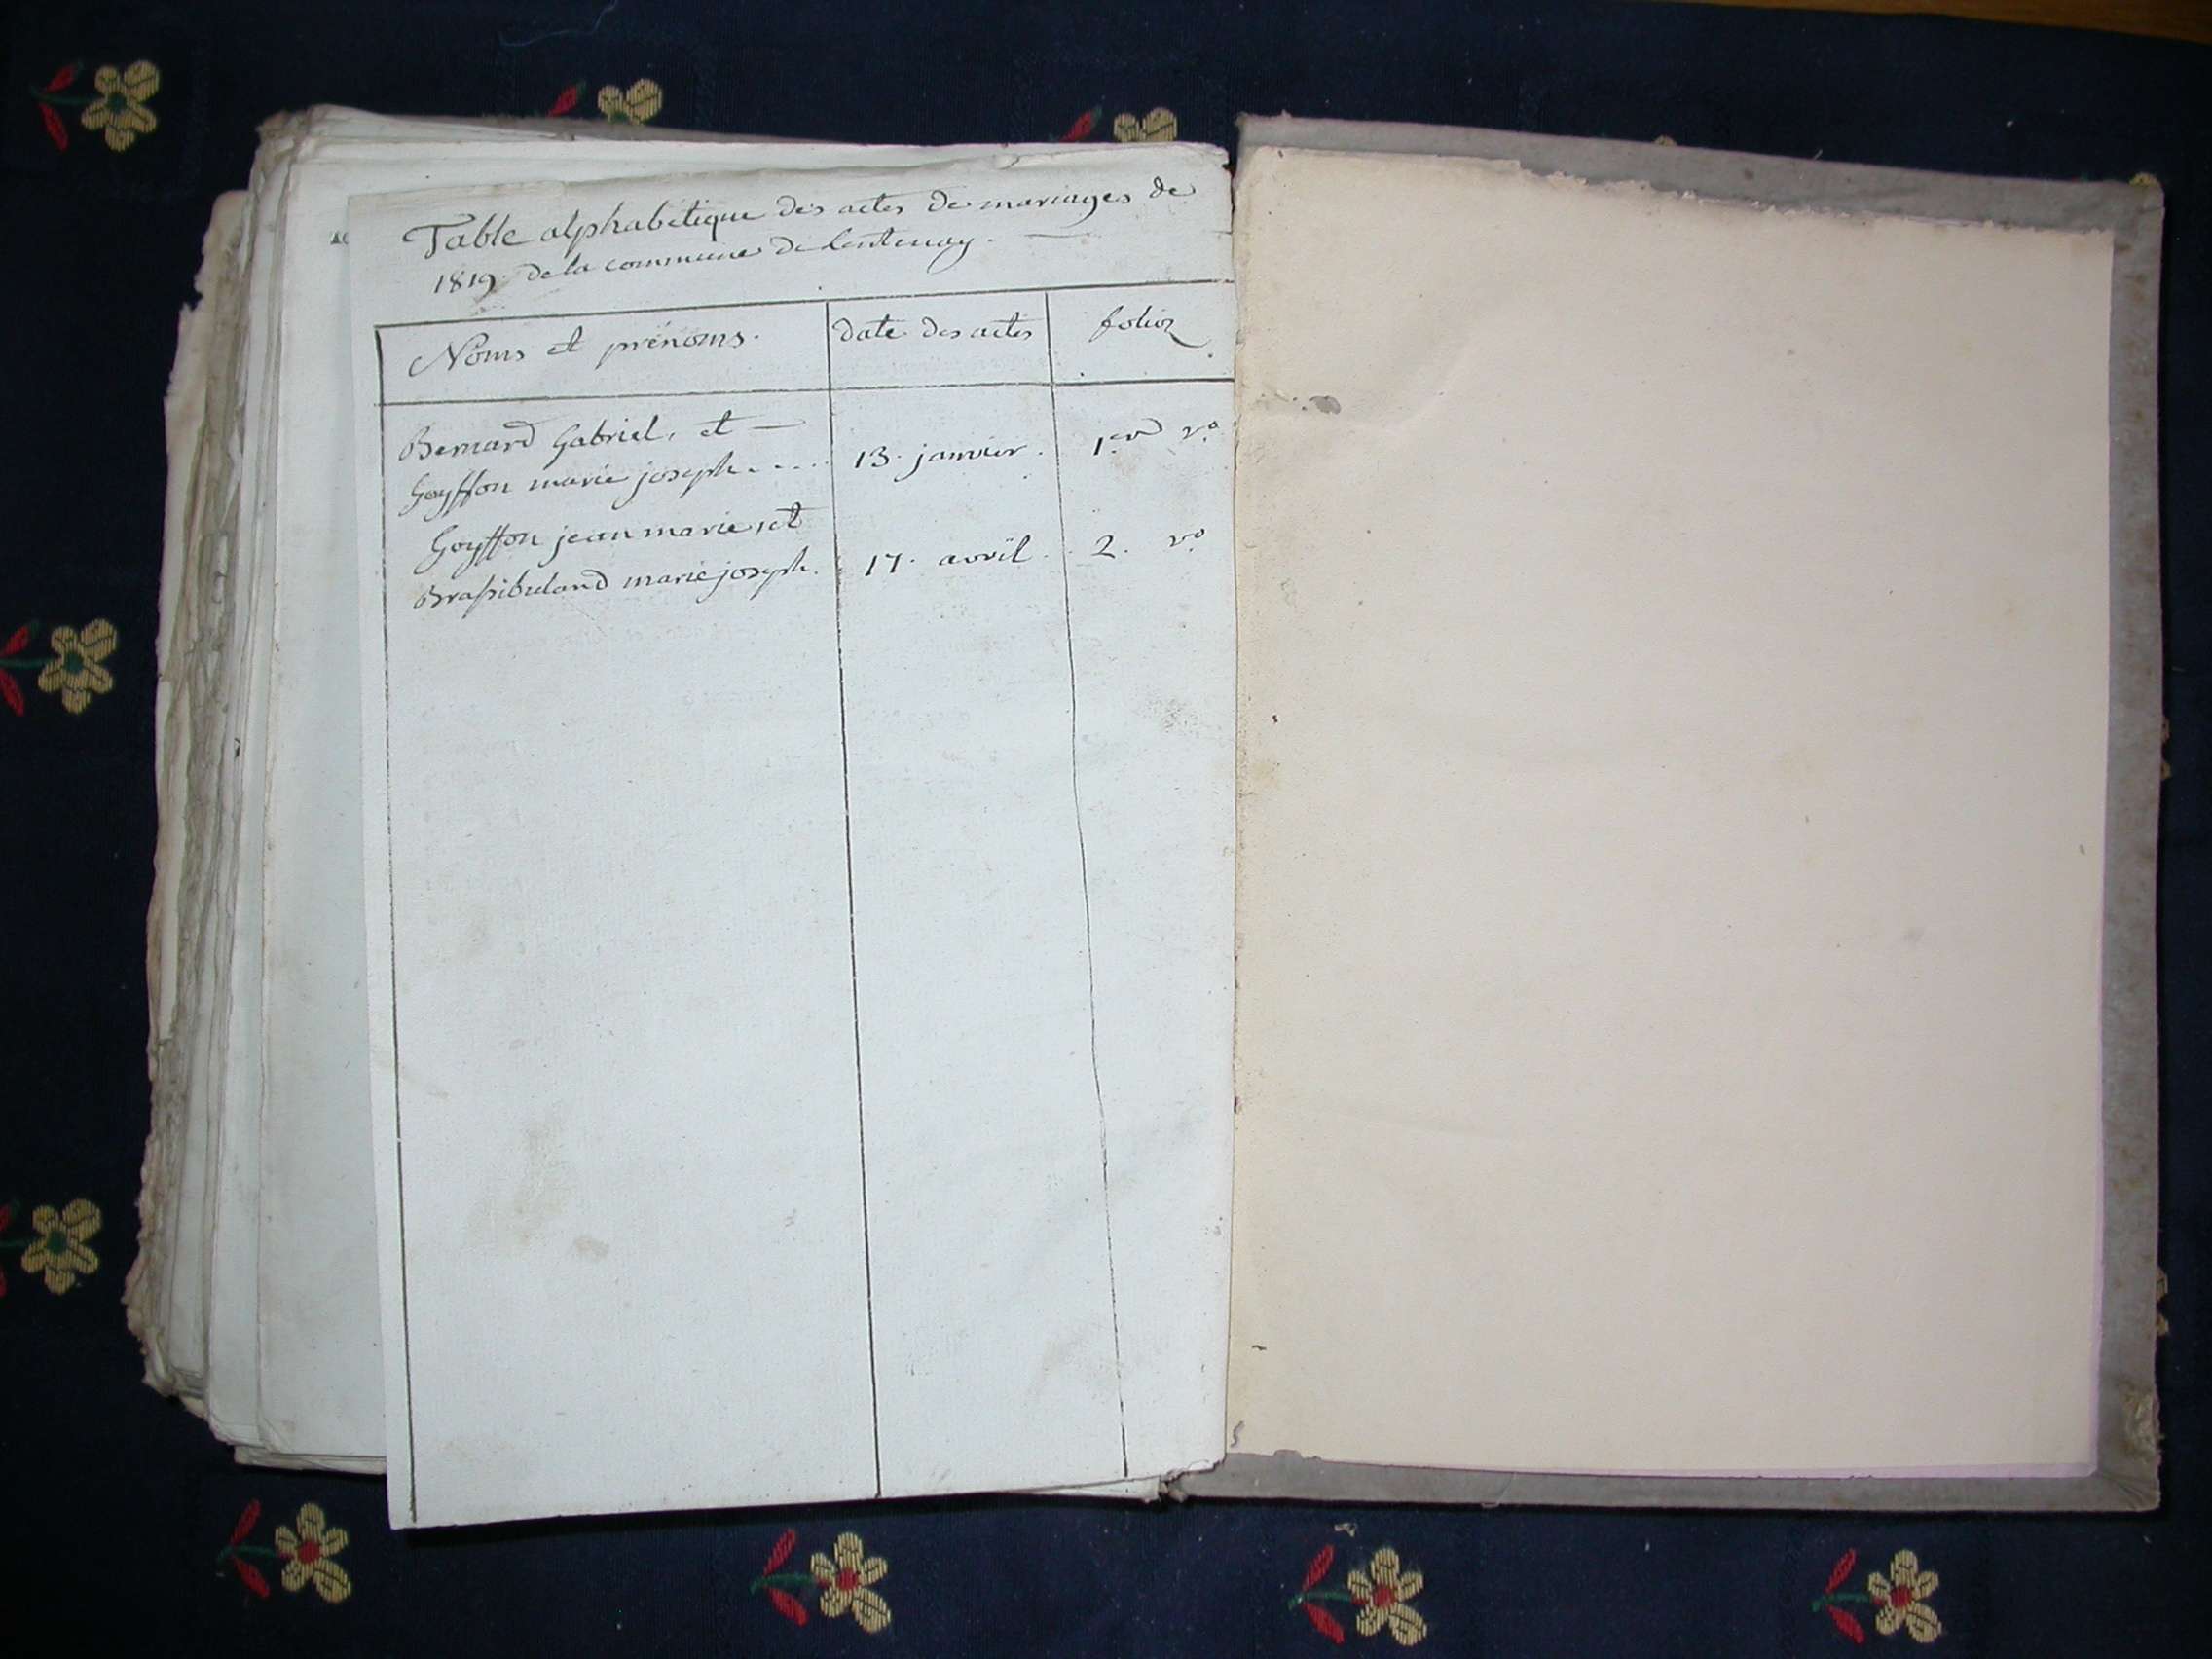 Table alphabétique des actes de mariages de
1819 de la commune de Lentenay.
Noms et prénoms.
date des actes
folio
Bernard Gabriel, et —
Goyffon marie joseph . . . . 13. janvier. 1.er vo
Goyffon jean marie, et
Brassibuland marie joseph. 17. avril. 2. vo